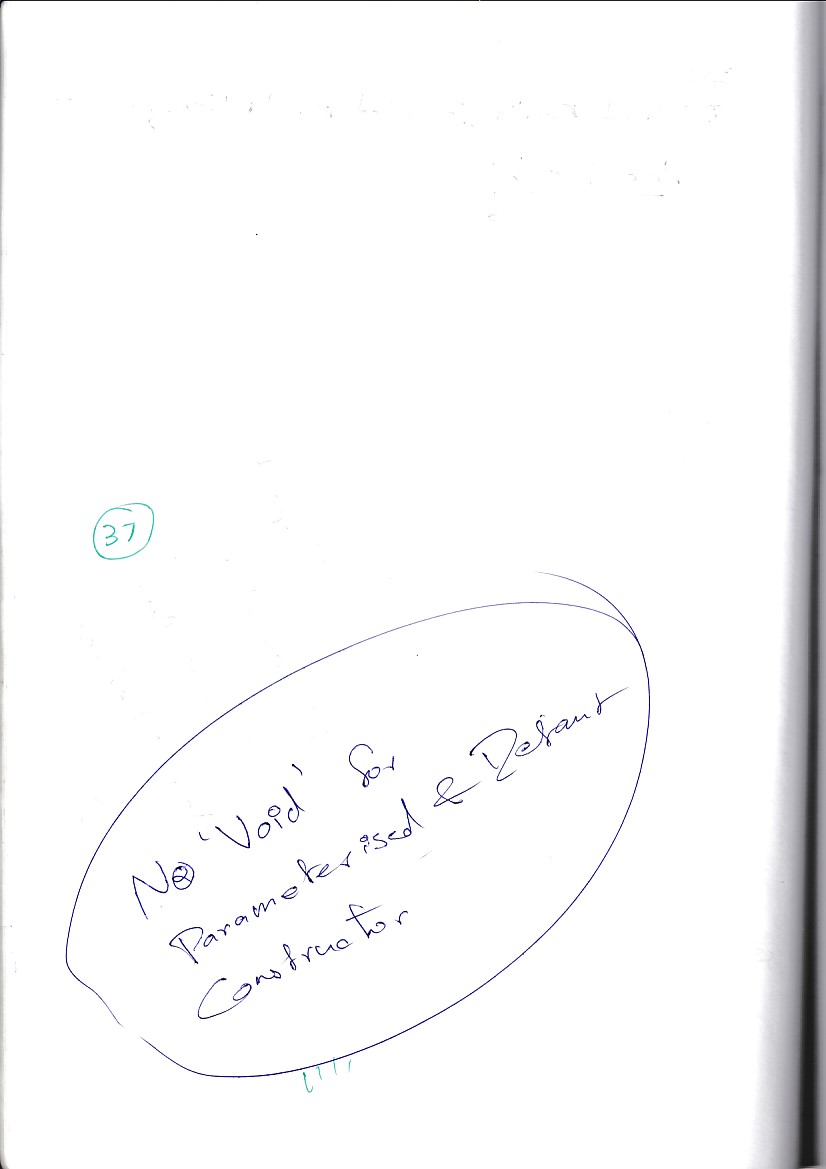 37
No 'Void' for
Parameterised & Default
Constructor